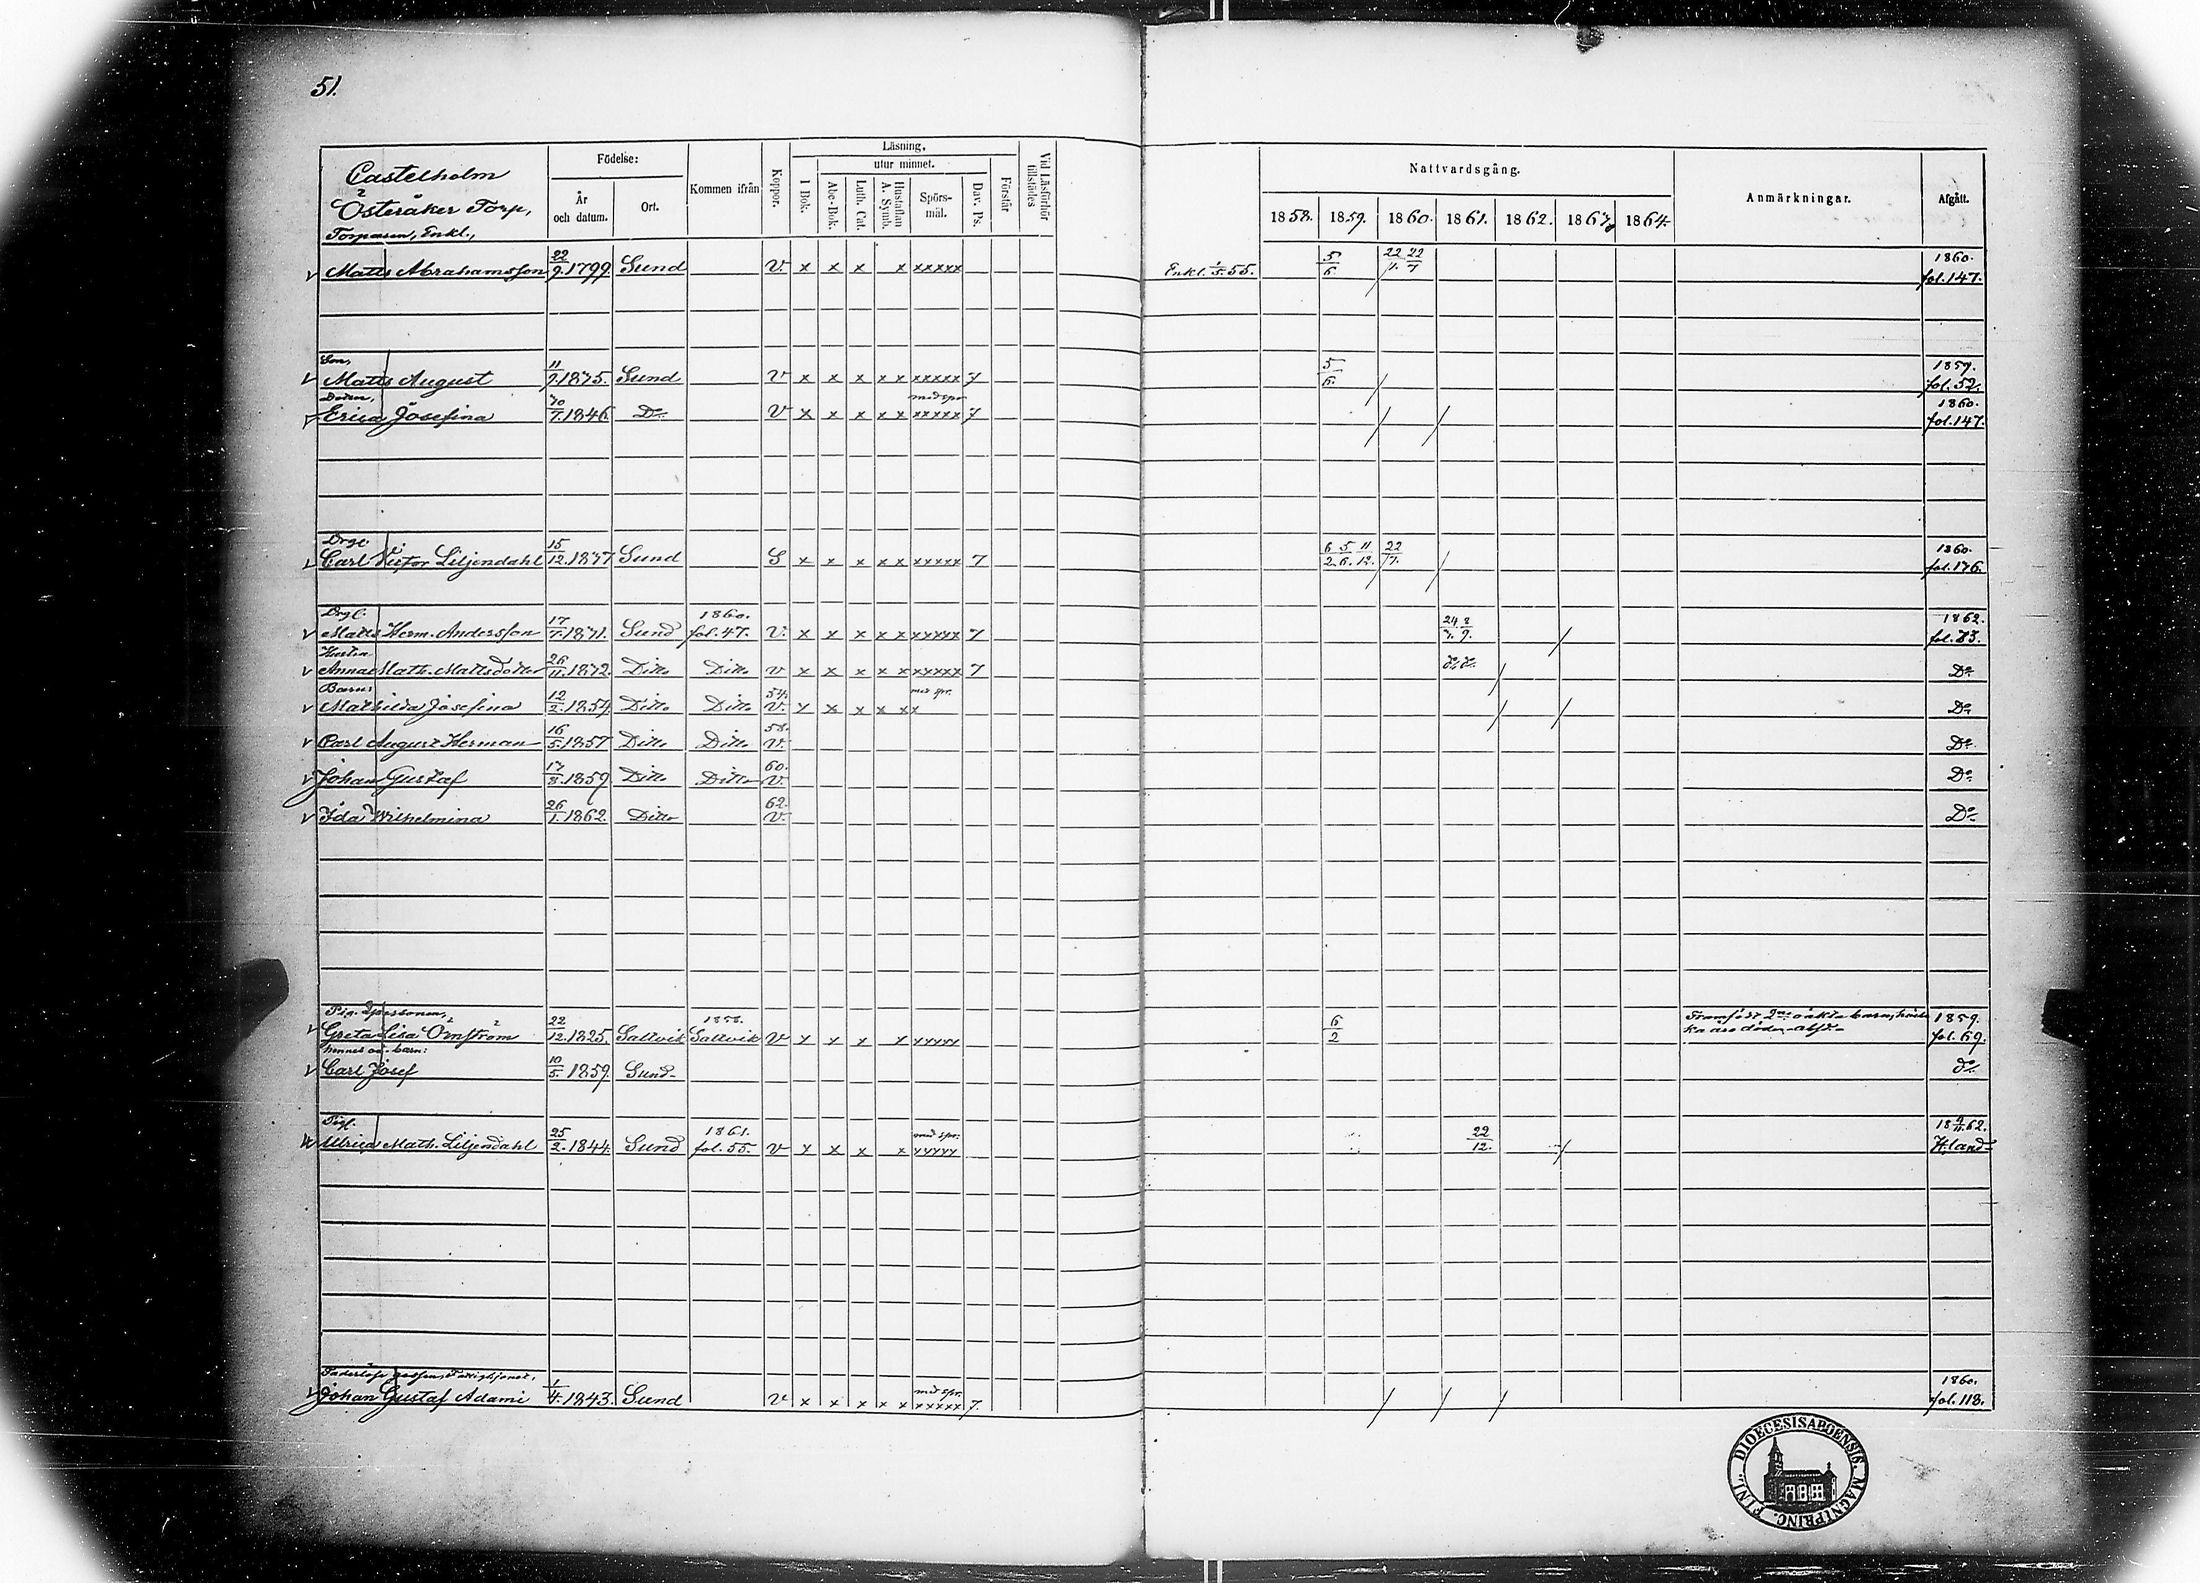 51.
Castelholm
Österåker Torp,
Torparen, Enkl.,
Födelse:
År och datum.
Ort.
Kommen ifrån
Koppor.
Läsning,
I Bok.
utur minnet.
Abc-Bok.
Luth. Cat.
Hustaflan A. Symb.
Spörsmål.
Dav. Ps.
Förstår
Vid Läsförhör tillstädes
Nattvardsgång.
1858. 1859. 1860. 1861. 1862. 1863 1864.
Anmärkningar.
Afgått.
Matts Abrahamsson 22/9.1799. Sund V. x x x x xxxxx Enkl. 1/5.55. 5/6 22/1. 22/7 1860. fol.147.
Son,
Matts August Sund V x x x x x xxxxx 7 5/6. 1859. fol.52.
med spr
Erica Josefina 1846. Do V x x x x x xxxxx 7 1860. fol.147.
Carl Victor Liljendahl 15/12. Sund S x x x x x xxxxx 7 6/2. 5/6. 11/12. 22/7. 1860. fol.176.
Matts Herm. Andersson Sund 1860. fol.47. V. x x x x x xxxxx 7 1862. fol.83.
Hustru
Anna Math. Mattsdotter 26/11. Ditto Ditto v x x x x x xxxxx 7 Do
Barn:
Mathilda Josefina 12/2.1854 Ditto Ditto 54. V. x x x x x x med spr. Do
Carl August Herman 16/5.1857 Ditto Ditto 58. V. Do
Johan Gustaf 17/8.1859 Ditto Ditto 60. V. Do
Ida Wilhelmina 26/1.1862. Ditto 62. V. Do
Greta Lisa Örnström 22/12.1825. Saltvik 1858. Saltvik V x x x x xxxxx 6/2 1859. fol.69.
hennes oä. barn:
Carl Josef 10/5.1859. Sund do
Ulrica Math. Liljendahl 25/2.1844. Sund 1861. fol.55. v x x x x med spr. xxxxx 22/12. 62.
Faderlöse gossen,
Johan Gustaf Adami 1/4.1843. Sund v x x x x x med spr. xxxxx 7. 1860. fol.118.
DIOECESIS ABOENSIS. MAGN. PRINC. FINL.